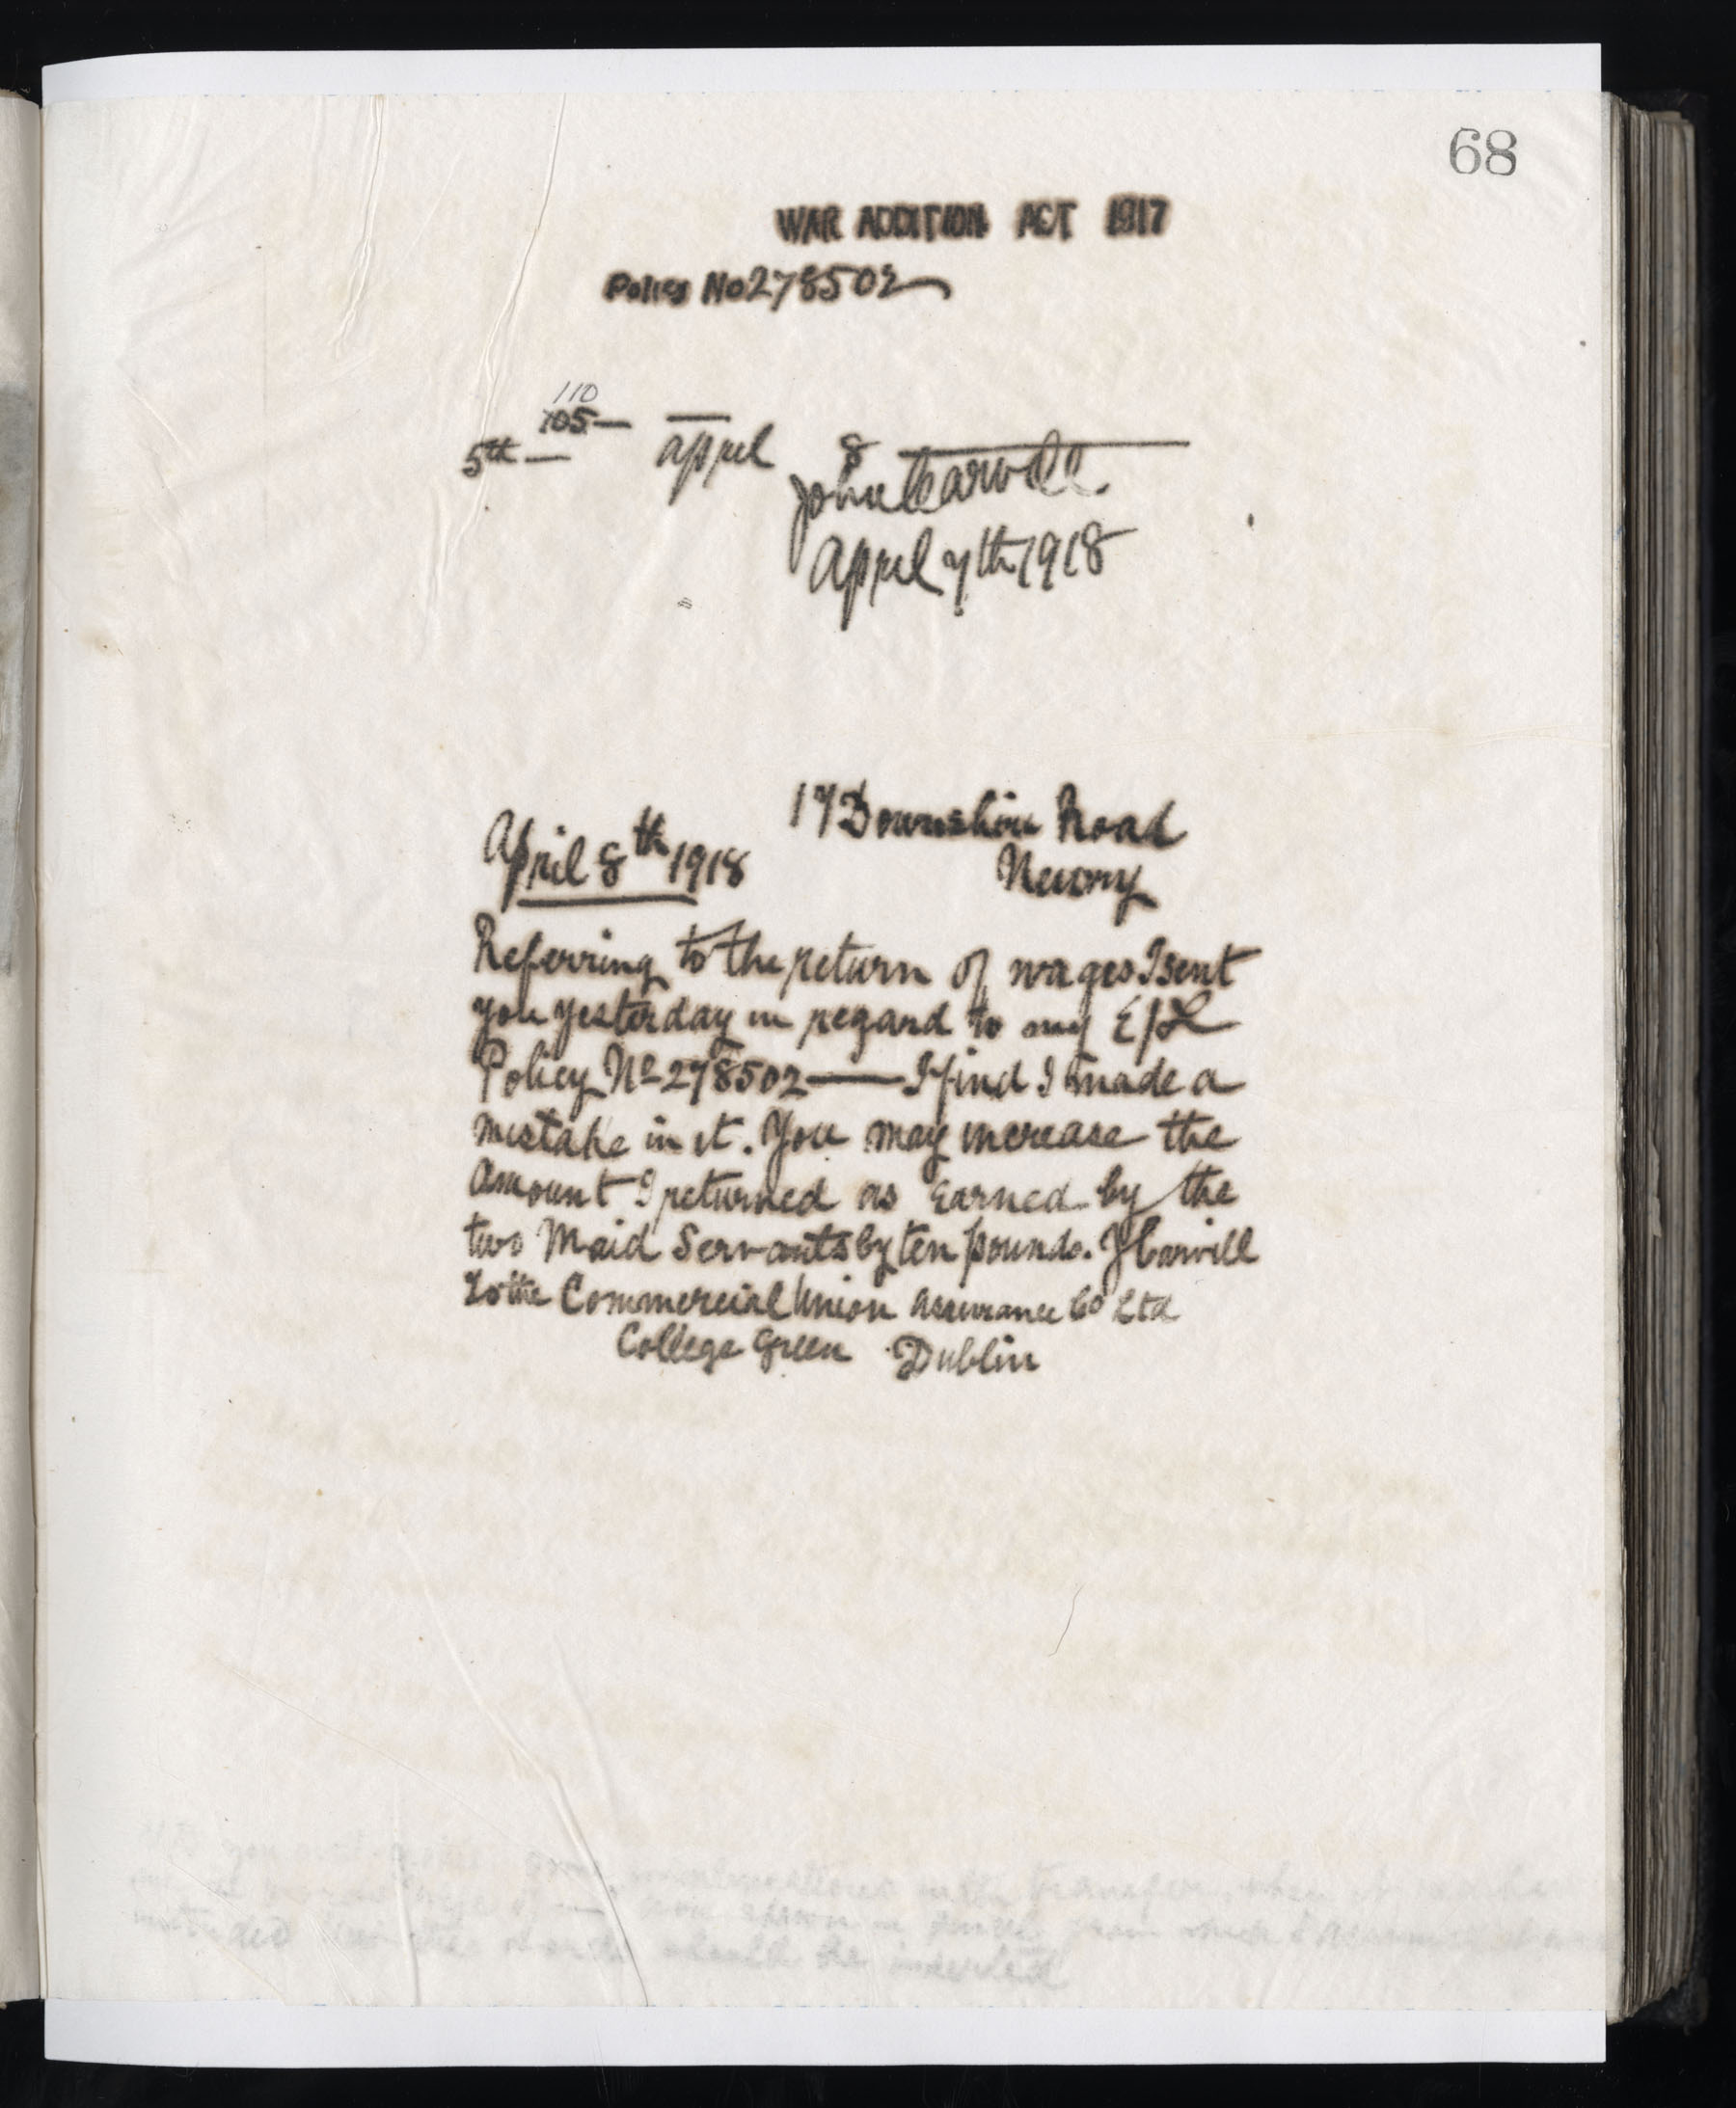 68
WAR ADDITION ACT 1917
Policy No 278502
110
105—
5th — April 8
John Carvill.
April 7th 1918
17 Downshire Road
April 8th 1918
Newry
Referring to the return of wages I sent
you yesterday in regard to my E/L
Policy No 278502 —— I find I made a
mistake in it. You may increase the
amount I returned as Earned by the
two Maid Servants by ten pounds. J Carvill
To the Commercial Union Assurance Co Ltd
College Green Dublin